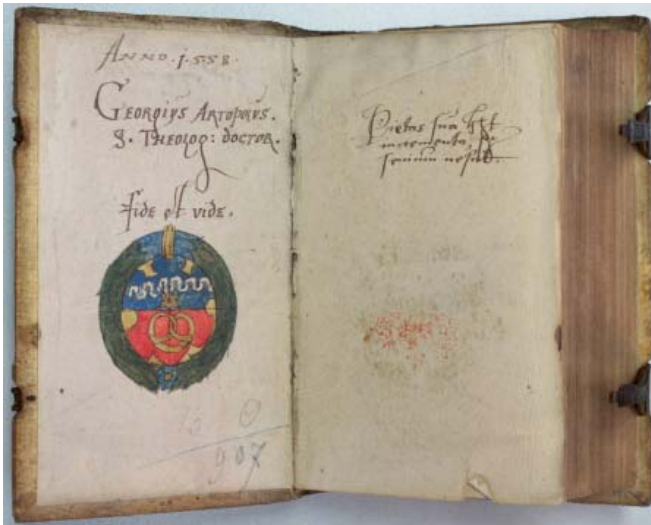 ANNO. 1.5.5.8.
GEORGIVS ARTOPŒVS.
S. THEOLOG: DOCTOR.
Fide et vide.
907
Pietas sua h̃t
incrementa, &
senium nescit.